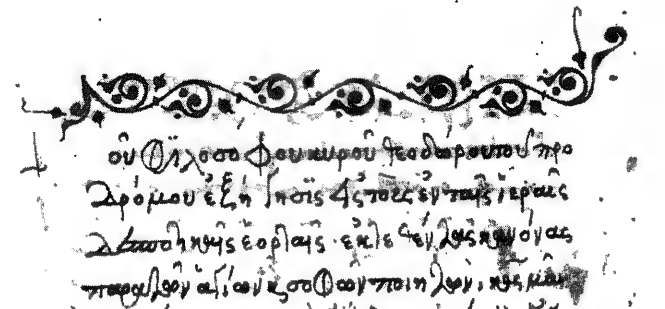 οῦ Φϊλοσοφου κυροῦ θεοδώρου τοῦ προ
δρόμου ἐξήγησϊς εἰς τοὺς ἐν ταῖς ἱεραῖς
δεσποτικαῖς ἑορταῖς ἐκτεθέντας κανόνας
παρὰ τῶν ἁγίων κ σοφῶν ποιητῶν,